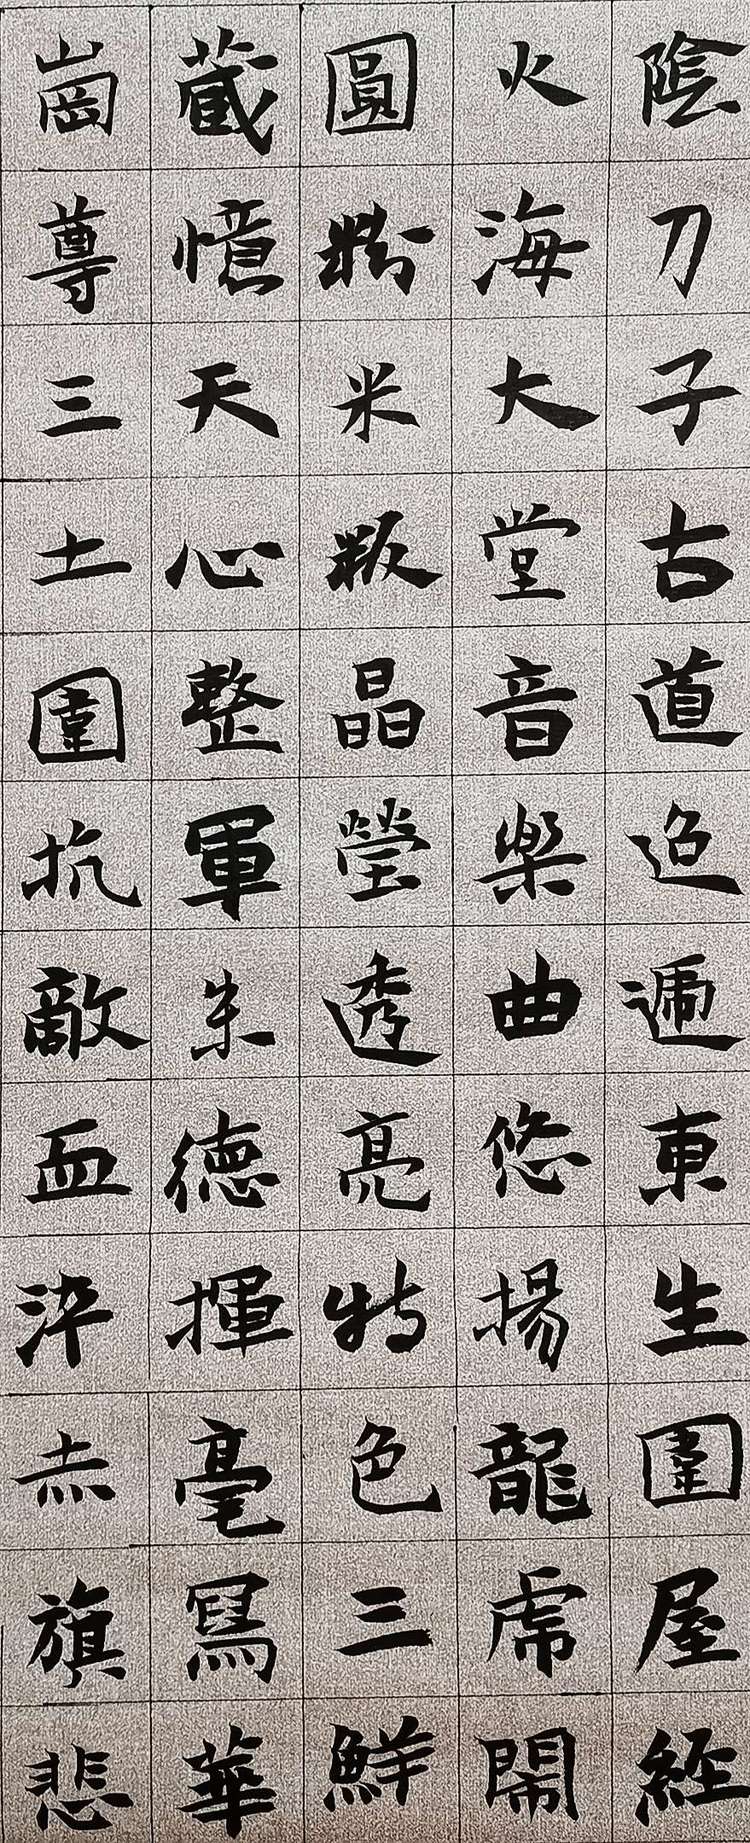 陰刀子古道迢遞東生圍屋經
火海大堂音樂曲悠揚龍虎鬧
圓粉米粄晶瑩透亮特色三鮮
蔵憶天心整軍朱德揮毫寫華
崗尊三土圍抗敵血淬赤旗悲